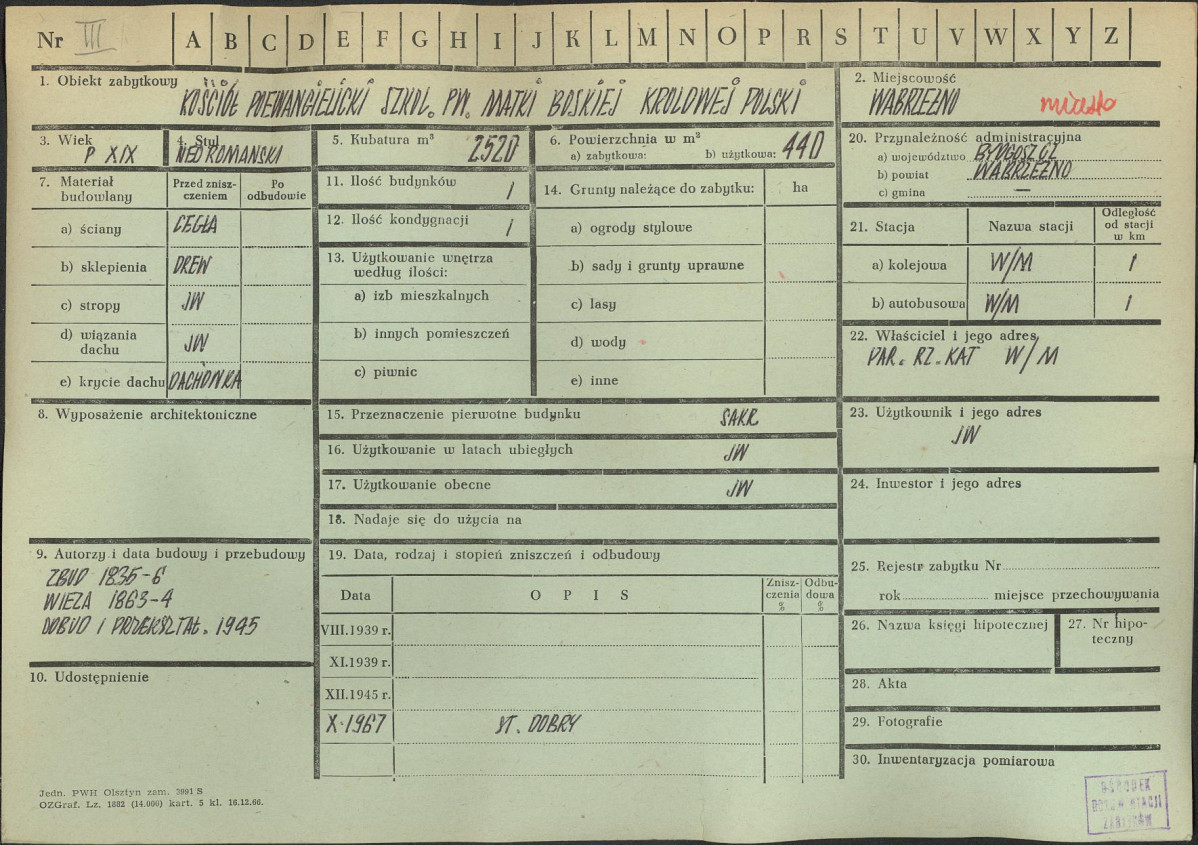 Nr III
A B C D E F G H I J K L M N O P R S T U V W X Y Z
1. Obiekt zabytkowy
KOŚCIÓŁ POEWANGIELICKI SZKOL. PW. MATKI BOSKIEJ KROLOWEJ POLSKI
2. Miejscowość
WĄBRZEŹNO miasto
3. Wiek
P XIX
4. Styl
NEOROMAŃSKI
5. Kubatura m³
2520
6. Powierzchnia w m²
a) zabytkowa: b) użytkowa: 440
20. Przynależność administracyjna
a) województwo BYDGOSZCZ
b) powiat WĄBRZEŹNO
c) gmina —
7. Materiał budowlany
Przed zniszczeniem
Po odbudowie
a) ściany CEGŁA
b) sklepienia DREW
c) stropy JW
d) wiązania dachu JW
e) krycie dachu DACHÓWKA
11. Ilość budynków 1
12. Ilość kondygnacji 1
13. Użytkowanie wnętrza według ilości:
a) izb mieszkalnych
b) innych pomieszczeń
c) piwnic
14. Grunty należące do zabytku: ha
a) ogrody stylowe
b) sady i grunty uprawne
c) lasy
d) wody
e) inne
21. Stacja
Nazwa stacji
Odległość od stacji w km
a) kolejowa W/M 1
b) autobusowa W/M 1
22. Właściciel i jego adres
PAR. RZ. KAT W/M
8. Wyposażenie architektoniczne
15. Przeznaczenie pierwotne budynku SAKR.
16. Użytkowanie w latach ubiegłych JW
17. Użytkowanie obecne JW
18. Nadaje się do użycia na
23. Użytkownik i jego adres
JW
24. Inwestor i jego adres
9. Autorzy i data budowy i przebudowy
ZBUD 1835-6
WIEZA 1863-4
DOBUD I PRZEKSZTAŁ. 1945
19. Data, rodzaj i stopień zniszczeń i odbudowy
Data
OPIS
Zniszczenia %
Odbudowa %
VIII.1939 r.
XI.1939 r.
XII.1945 r.
X.1967 ST. DOBRY
25. Rejestr zabytku Nr
rok miejsce przechowywania
26. Nazwa księgi hipotecznej
27. Nr hipoteczny
10. Udostępnienie
28. Akta
29. Fotografie
30. Inwentaryzacja pomiarowa
Jedn. PWH Olsztyn zam. 3991 S
OZGraf. Lz. 1882 (14.000) kart. 5 kl. 16.12.66.
OŚRODEK
DOKUMENTACJI
ZABYTKÓW